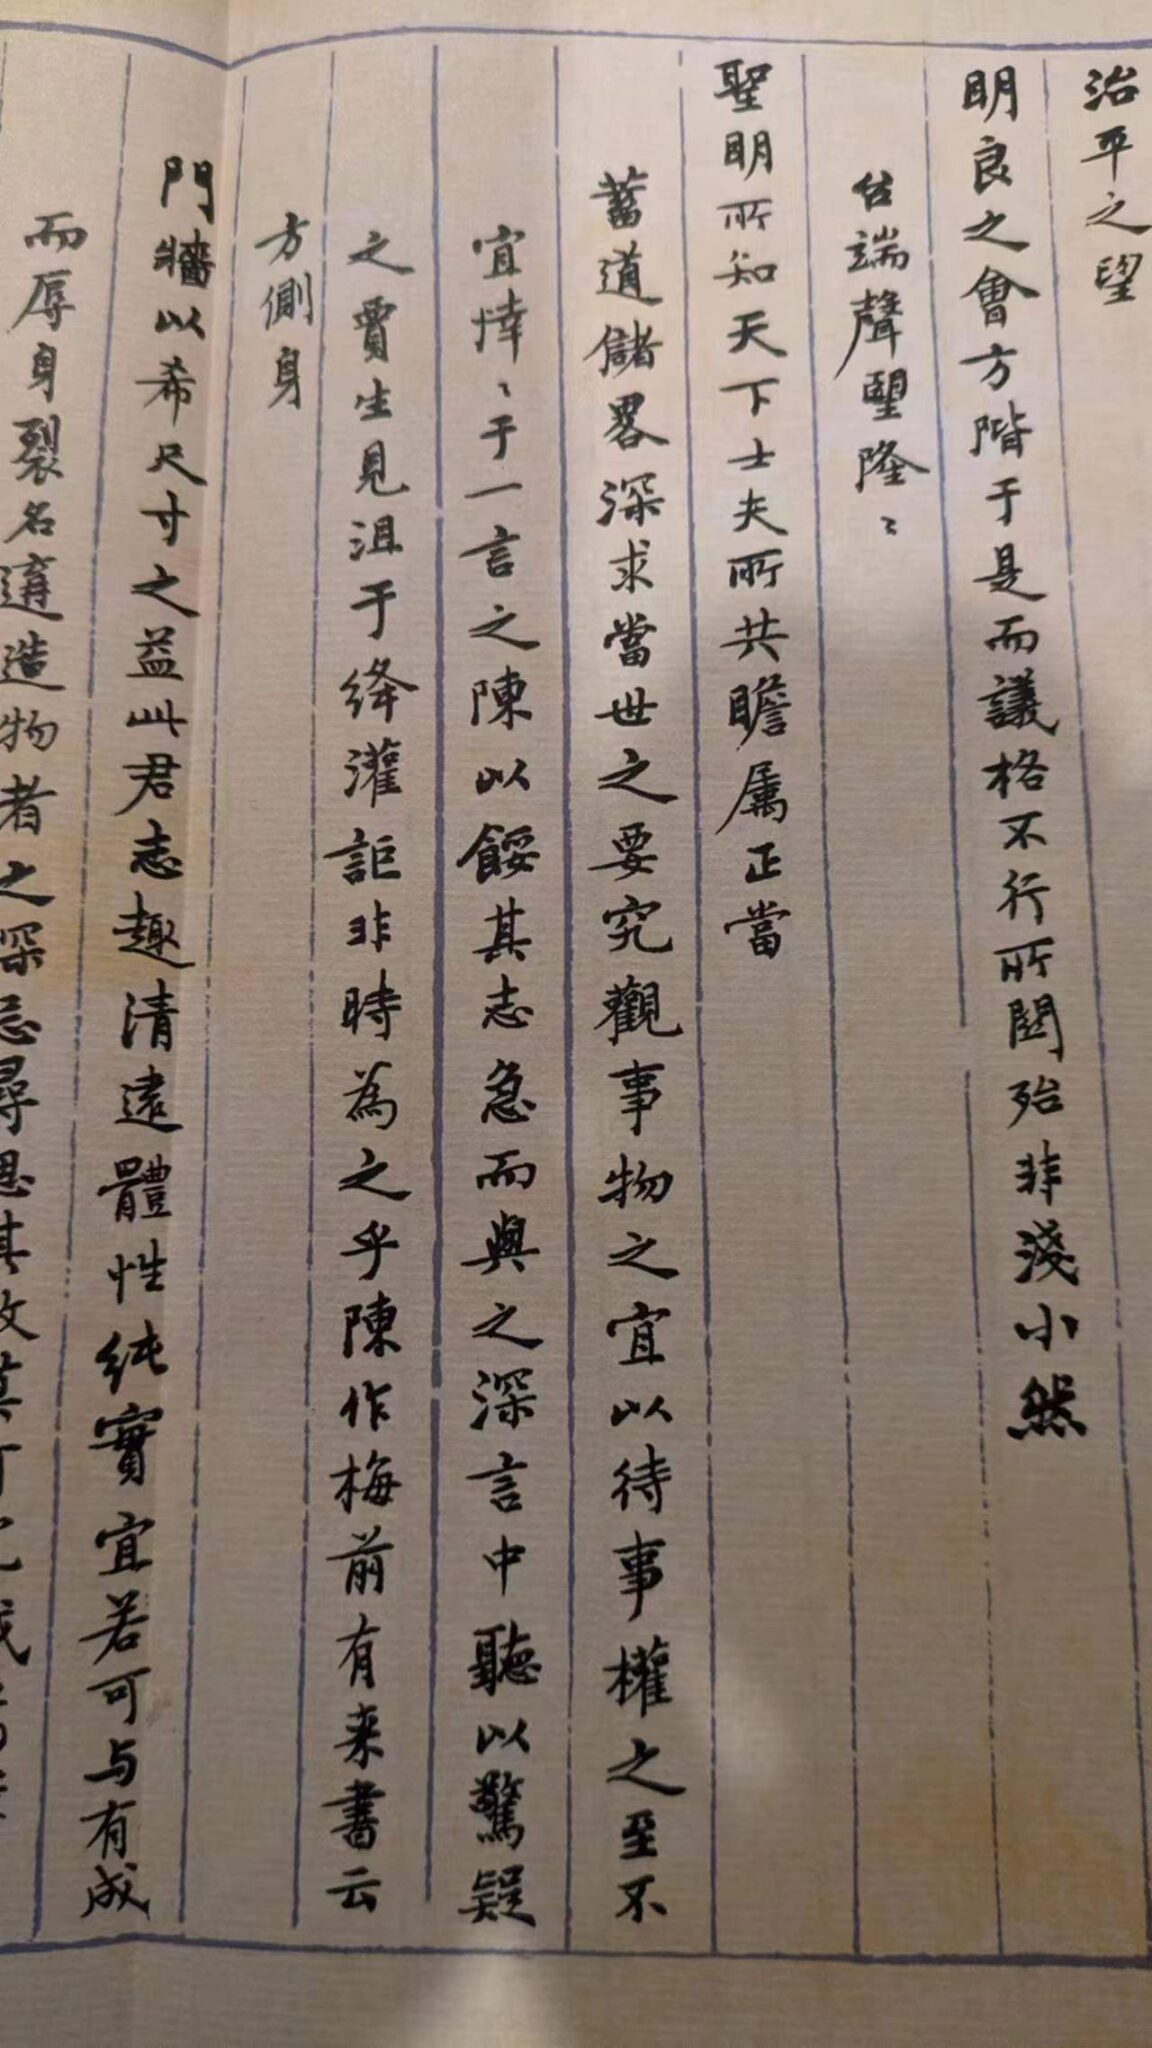 治平之望
明良之會方階于是而議格不行所關殆非淺小然
台端聲望隆〻
聖明所知天下士夫所共瞻屬正當
蓄道儲畧深求當世之要究觀事物之宜以待事權之至不
宜悻〻于一言之陳以餒其志急而與之深言中聽以驚疑
之賈生見沮于絳灌詎非時為之乎陳作梅前有来書云
方側身
門牆以希尺寸之益此君志趣清遠體性純實宜若可与有成
而辱身裂名遘造物者之深忌尋思其故莫